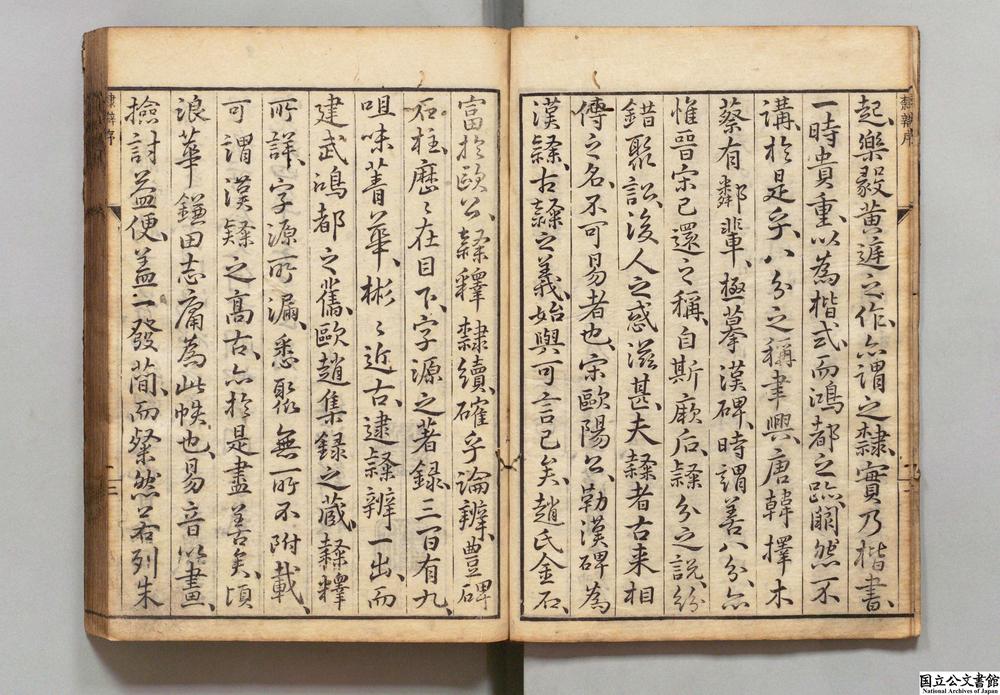 隸辨序
起、樂毅黃庭之作、亦謂之隸、實乃楷書、
一時貴重、以為楷式、而鴻都之跡、闃然不
講、於是乎、八分之稱聿興、唐韓擇木
蔡有鄰輩、極摹漢碑、時謂善八分、亦
惟晉宋已還之稱、自斯厥后、隸分之說、紛
錯聚訟、後人之惑滋甚、夫隸者古来相
傳之名、不可易者也、宋歐陽公、勒漢碑為
漢隸、古隸之義、始與可言已矣、趙氏金石、
富於歐公、隸釋隸續、確乎論辨、豐碑
石柱、歷々在目下、字源之著録、三百有九、
咀味菁華、彬々近古、逮隸辨一出、而
建武鴻都之舊、歐趙集録之蔵、隸釋
所詳、字源所漏、悉聚無一所不附載、
可謂漢隸之高古、亦於是盡善矣、頃
浪華鎌田志庸為此帙也、易音以畫、
撿討益便、盖一發簡、而粲然若列朱
隸辨序
二
国立公文書館
National Archives of Japan